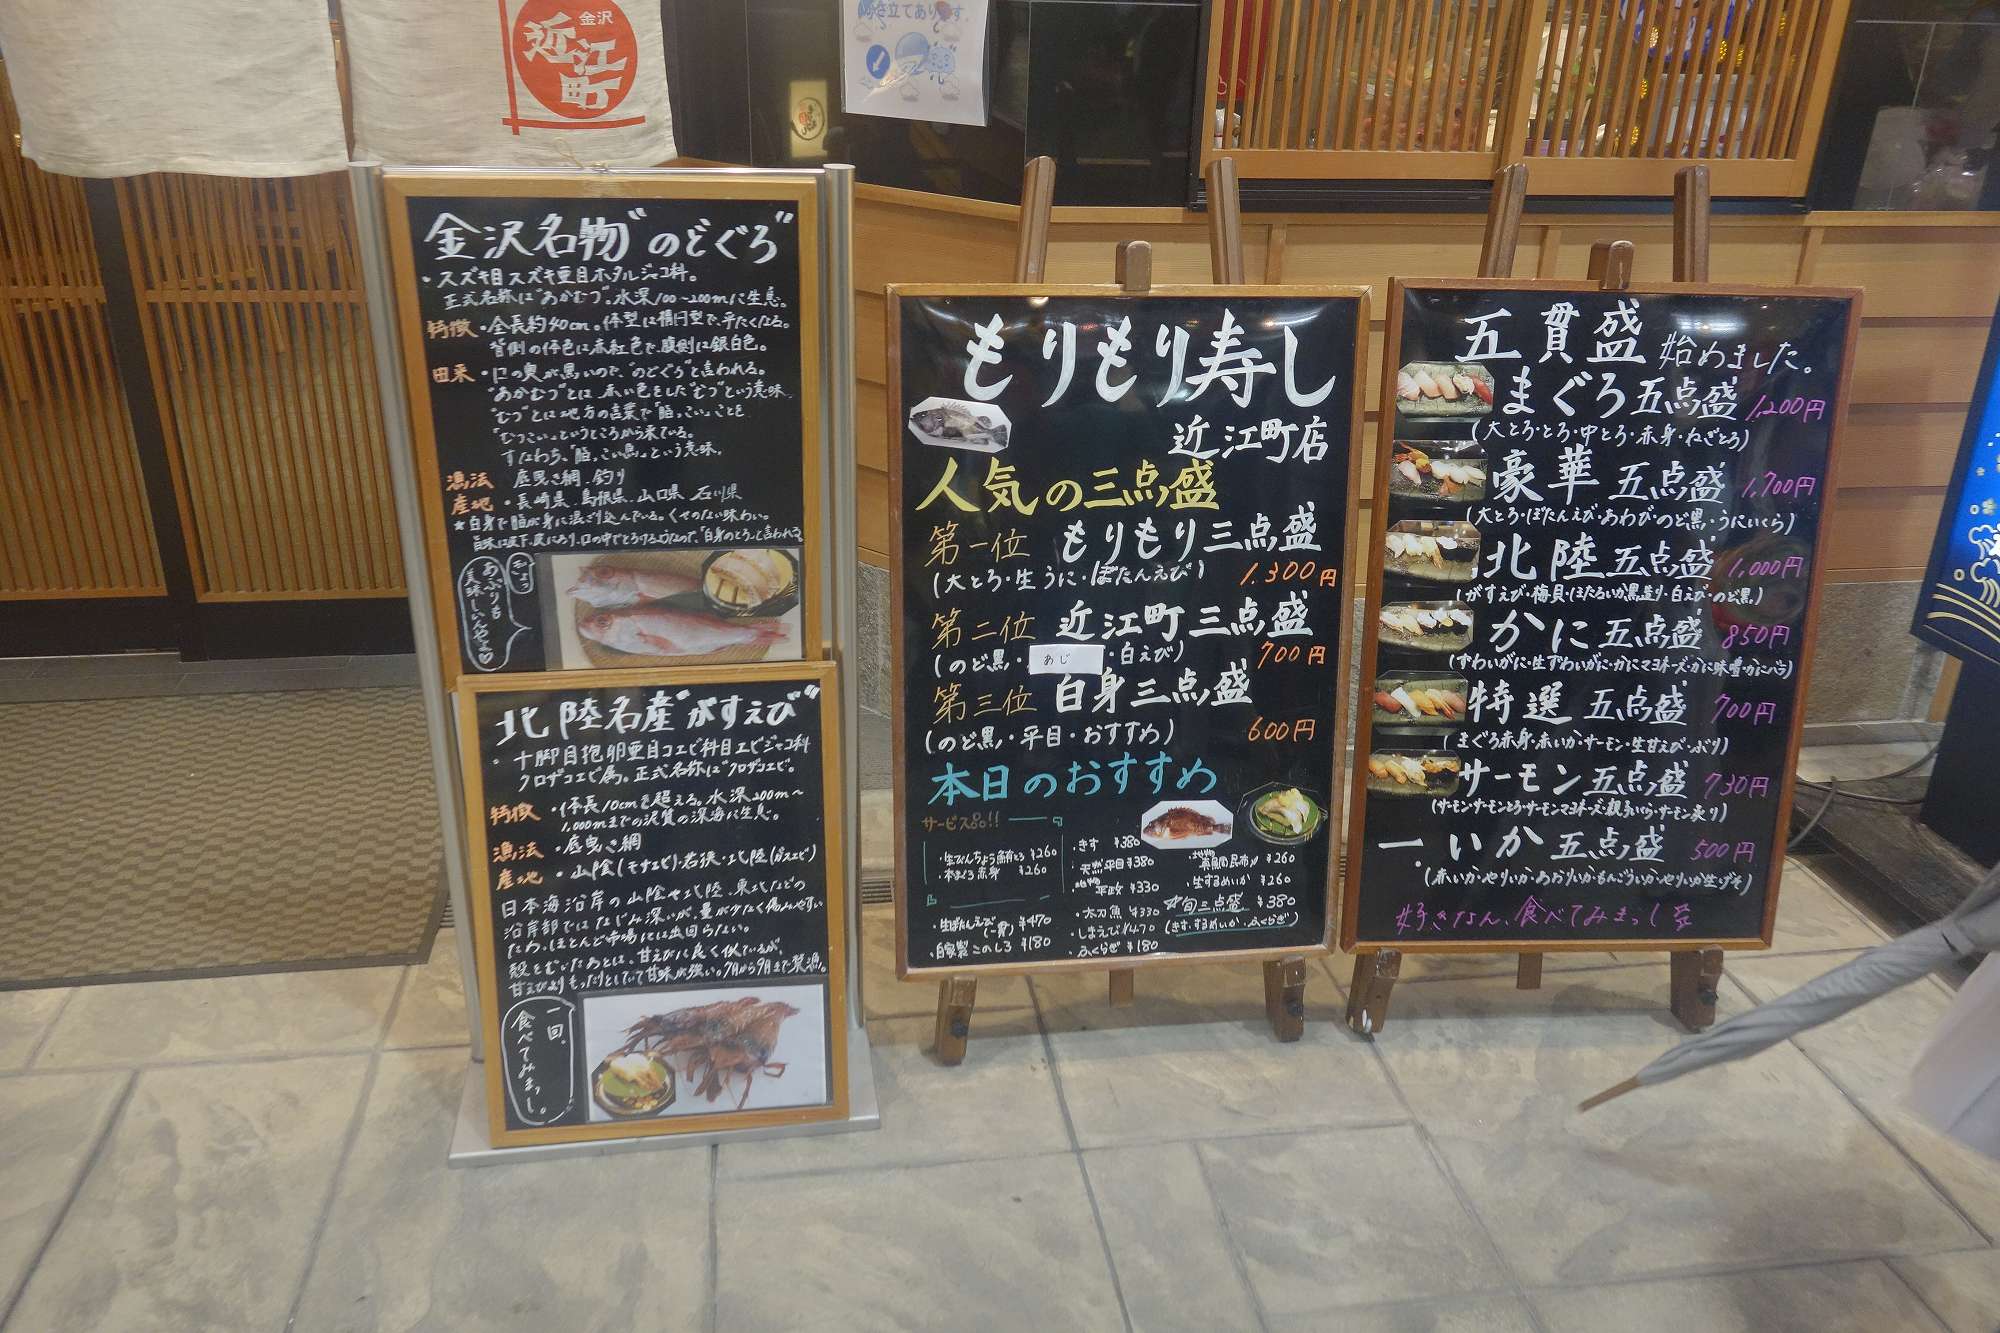 金沢
近江町
金沢名物"のどぐろ"
・スズキ目スズキ亜目ホタルジャコ科。
正式名称は"あかむつ"。水深100~200mに生息。
特徴・全長約40cm。体型は楕円型で、平たくなる。
背側の体色は赤紅色で、腹側は銀白色。
由来・口の奥が黒いので、"のどぐろ"と言われる。
"あかむつ"とは 赤い色をした"むつ"という意味。
"むつ"とは地方の言葉で「脂っこい」ことを
"むつっこい"というところから来ている。
すなわち、「脂っこい魚」という意味。
漁法 底曳き網、釣り
産地・長崎県、島根県、山口県、石川県
★白身で脂が身に混ざり込んでいる。くせのない味わい。
旨味は皮下、皮にあり、口の中でとろけるようなので、「白身のとろ」と言われる
ちょっ
あぶりも
美味しいんやよ♡
北陸名産"がすえび"
・十脚目抱卵亜目コエビ科目エビジャコ科
クロザコエビ属。正式名称は"クロザコエビ"。
特徴・体長10cmを超える。水深200m~
1,000mまでの泥質の深海に生息。
漁法・底曳き網
産地・山陰(モサエビ)・若狭・北陸(ガスエビ)
日本海沿岸の山陰や北陸、東北などの
沿岸部ではなじみ深いが、量が少なく傷みやすい
為、ほとんど市場には出回らない。
殻をむいたあとは、甘えびに良く似ているが、
甘えびよりもったりとしていて甘味が強い。7月から9月まで禁漁。
一回、
食べてみまっし。
もりもり寿し
近江町店
人気の三点盛
第一位 もりもり三点盛
(大とろ・生うに・ぼたんえび) 1,300円
第二位 近江町三点盛
(のど黒・あじ・白えび) 700円
第三位 白身三点盛
(のど黒・平目・おすすめ) 600円
本日のおすすめ
サービス品!!
・生びんちょう鮪とろ ¥260
・本まぐろ赤身 ¥260
・生ぼたんえび(一貫) ¥470
・自家製このしろ ¥180
・きす ¥380
天然平目 ¥380
・地物 平政 ¥330
・太刀魚 ¥330
・しまえび ¥470
・ふくらぎ ¥180
¥260
・生するめいか ¥260
☆旬三点盛 ¥380
(きす、するめいか、ふくらぎ)
五貫盛 始めました。
まぐろ五点盛 1,200円
(大とろ・とろ・中とろ・赤身・ねぎとろ)
豪華五点盛 1,700円
(大とろ・ぼたんえび・あわび・のど黒・うにいくら)
北陸五点盛 1,000円
(がすえび・梅貝・ほたるいか黒造り・白えび・のど黒)
かに五点盛 850円
(ずわいがに・生ずわいがに・かにマヨネーズ・かに味噌・かにバラ)
特選五点盛 700円
(まぐろ赤身・赤いか・サーモン・生甘えび・ぶり)
サーモン五点盛 730円
(サーモン・サーモンとろ・サーモンマヨネーズ・親子いくら・サーモン炙り)
いか五点盛 500円
(赤いか・やりいか・あおりいか・もんごういか・やりいか生げそ)
好きなん、食べてみまっし